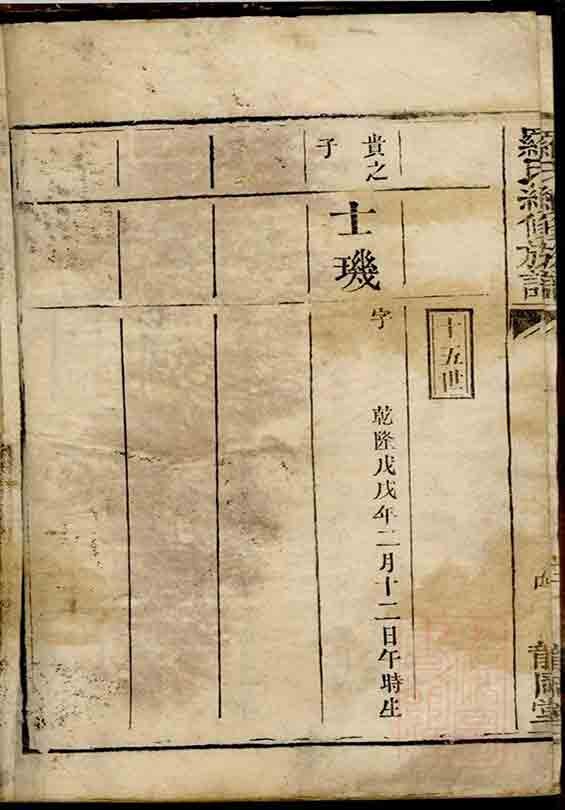 羅氏續修族譜
龍岡堂
十五世
貴之
子
士璣
字
乾隆戊戌年二月十二日午時生